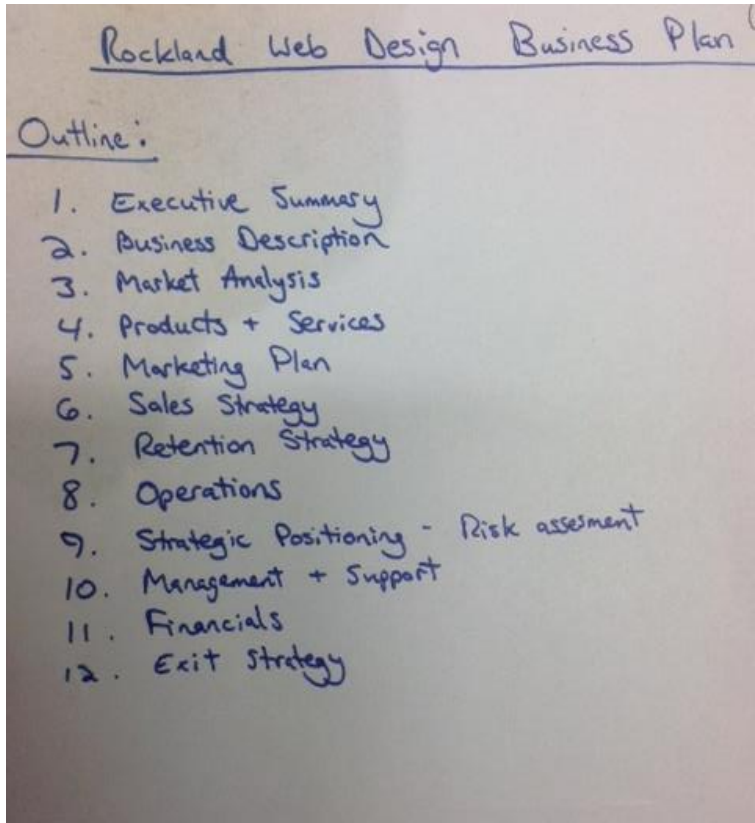 Rockland Web Design Business Plan
Outline:
1. Executive Summary
2. Business Description
3. Market Analysis
4. Products + Services
5. Marketing Plan
6. Sales Strategy
7. Retention Strategy
8. Operations
9. Strategic Positioning - Risk assesment
10. Management + Support
11. Financials
12. Exit Strategy